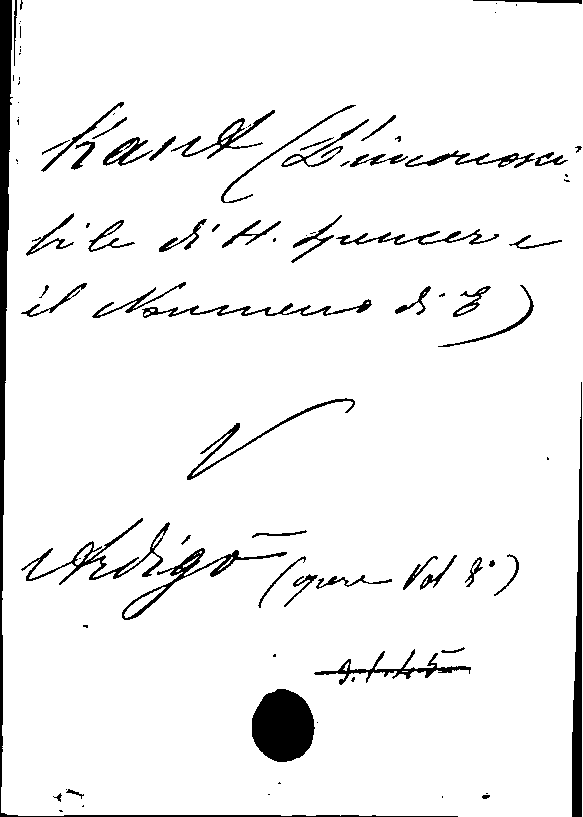 Kant (L'inconosci-
bile di H. Spencer e
il Noumeno di E)
V
Ardigò (opere Vol 8°)
9.1.4.5